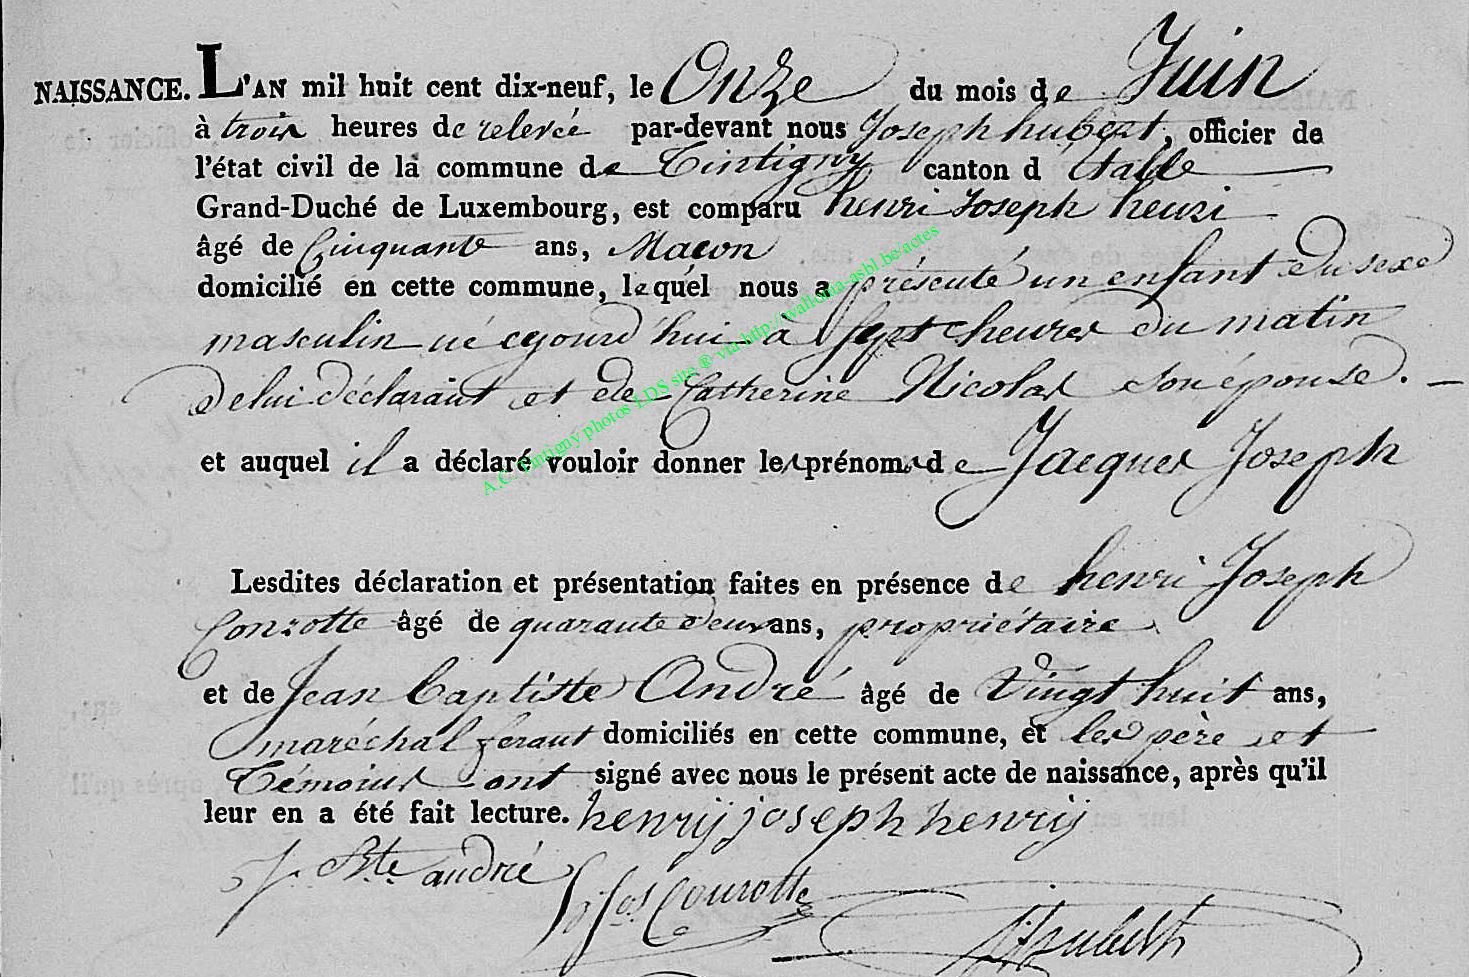 NAISSANCE. L'AN mil huit cent dix-neuf, le Onze du mois de Juin
à trois heures de relevée par-devant nous Joseph hubert, officier de
l'état civil de la commune de Tintigny canton d Etalle
Grand-Duché de Luxembourg, est comparu henri Joseph henri
âgé de Cinquante ans, Macon
domicilié en cette commune, lequel nous a présenté un enfant du sexe
masculin né cejourd'hui à Sept heures du matin
de lui déclarant et de Catherine Nicolas son épouse.
et auquel il a déclaré vouloir donner les prénoms de Jacques Joseph
Lesdites déclaration et présentation faites en présence de henri Joseph
âgé de quarante deux ans, propriétaire
et de Jean baptiste André âgé de Vingt huit ans,
maréchal feraut domiciliés en cette commune, et les père et
témoins ont signé avec nous le présent acte de naissance, après qu'il
leur en a été fait lecture. henrij joseph henrij
J. Bte andré
hubert
A.C. Tintigny photos LDS site ® via http://wallonia-asbl.be/actes